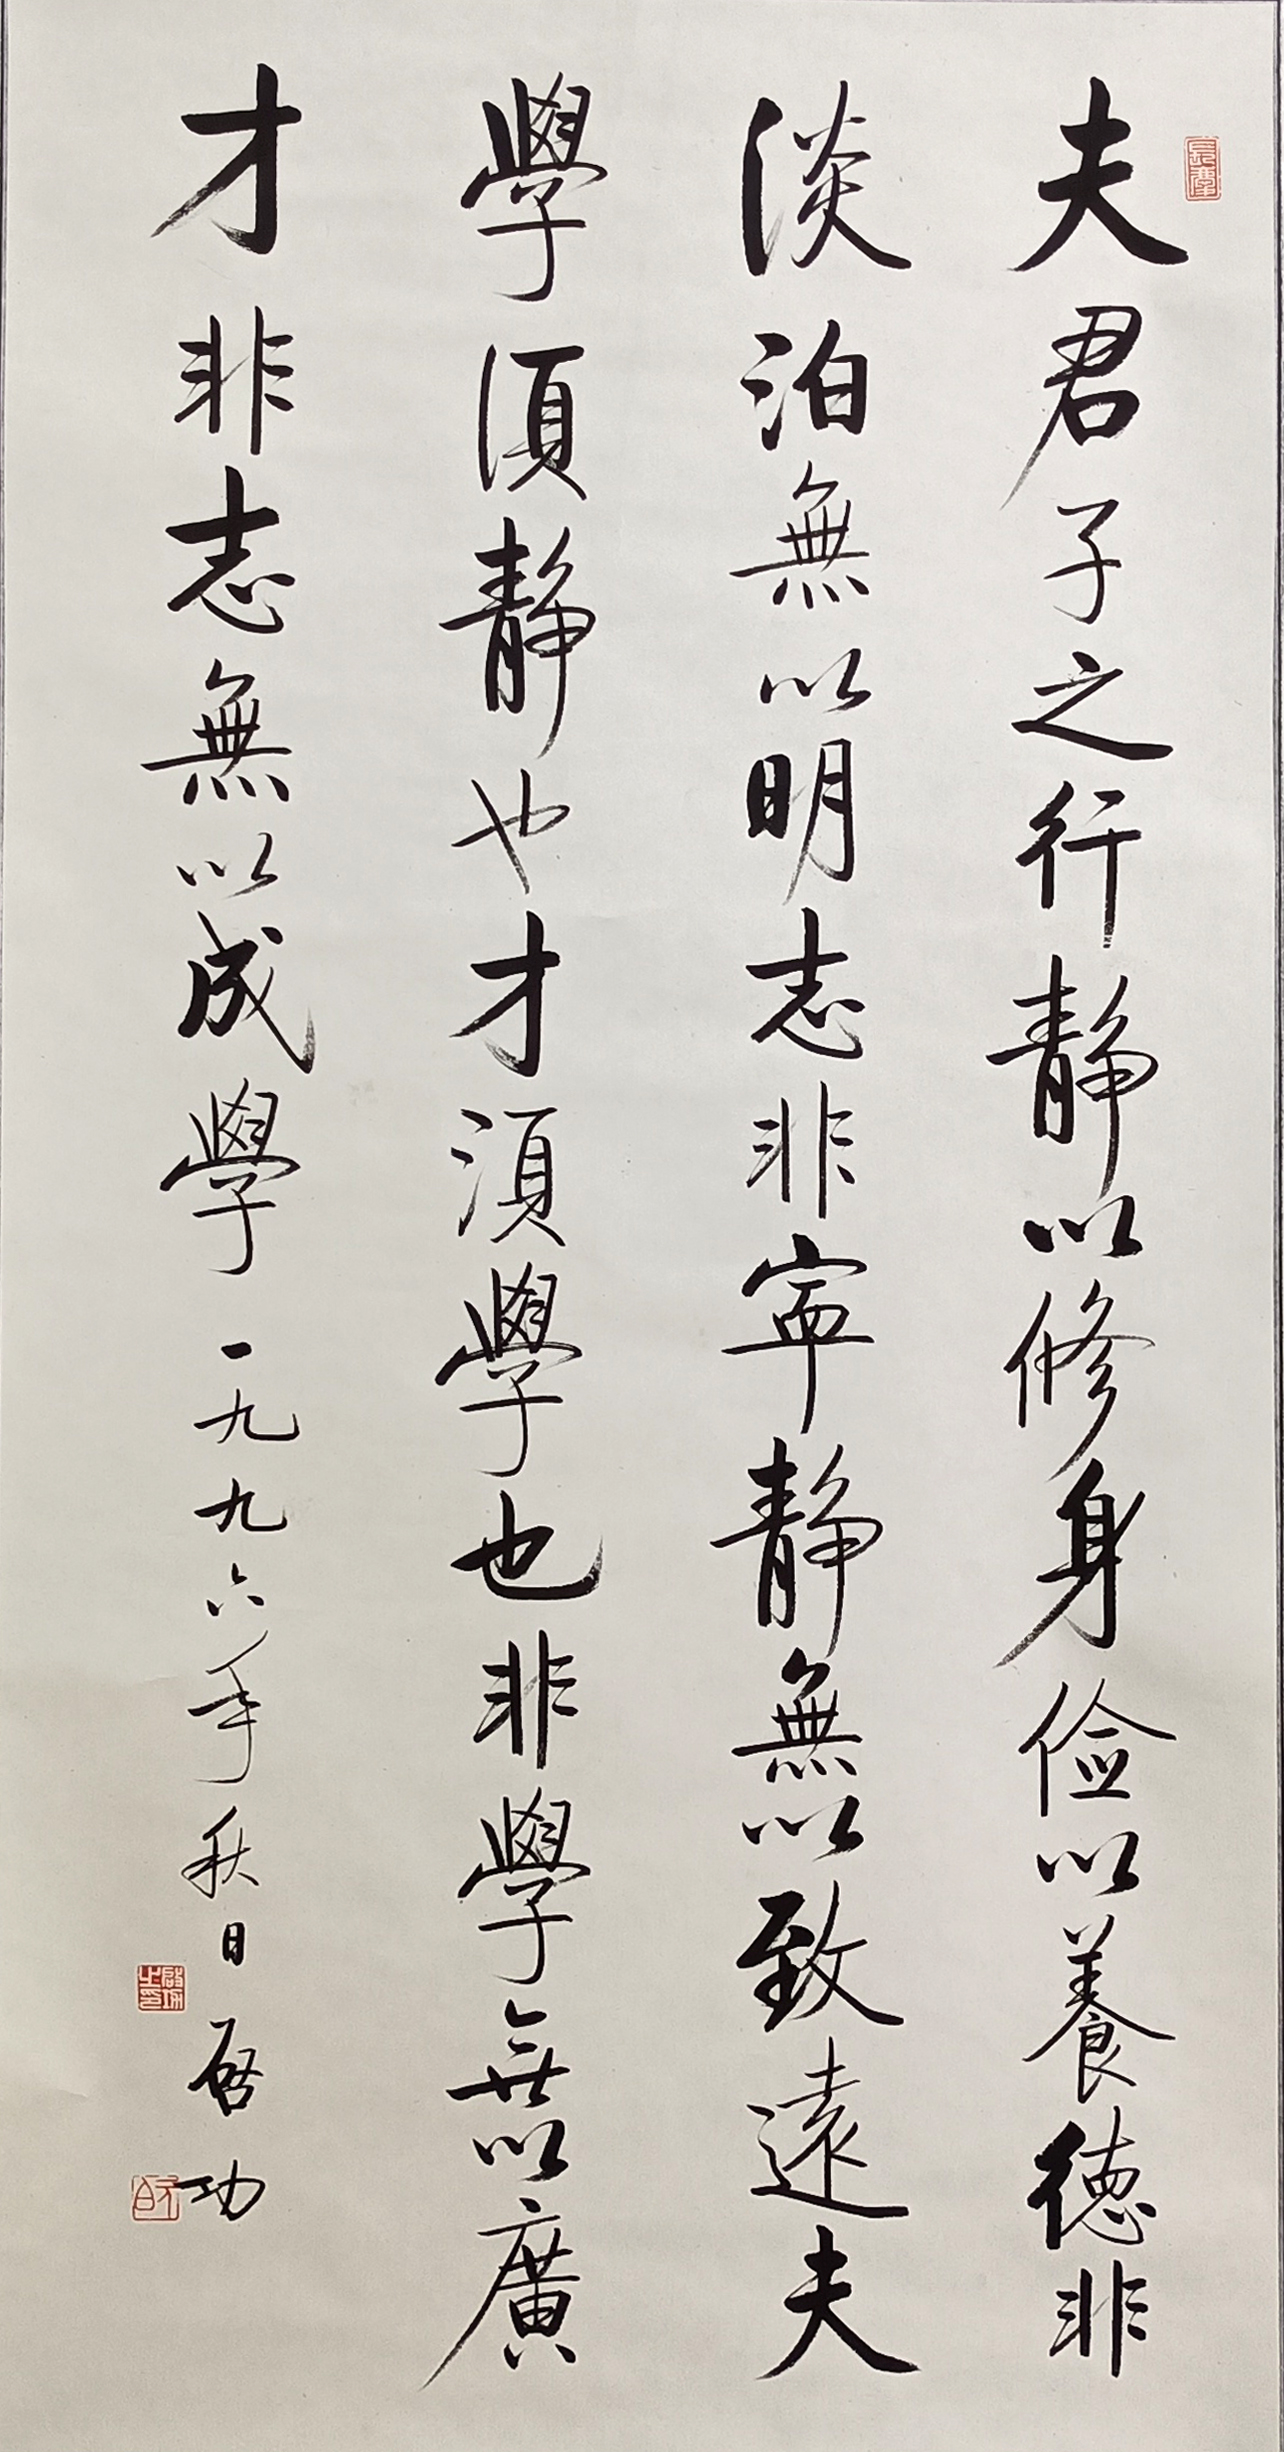 夫君子之行静以修身俭以養德非
淡泊無以明志非寧静無以致遠夫
學須静也才須學也非學無以廣
才非志無以成學一九九六年秋日启功
啟功之印